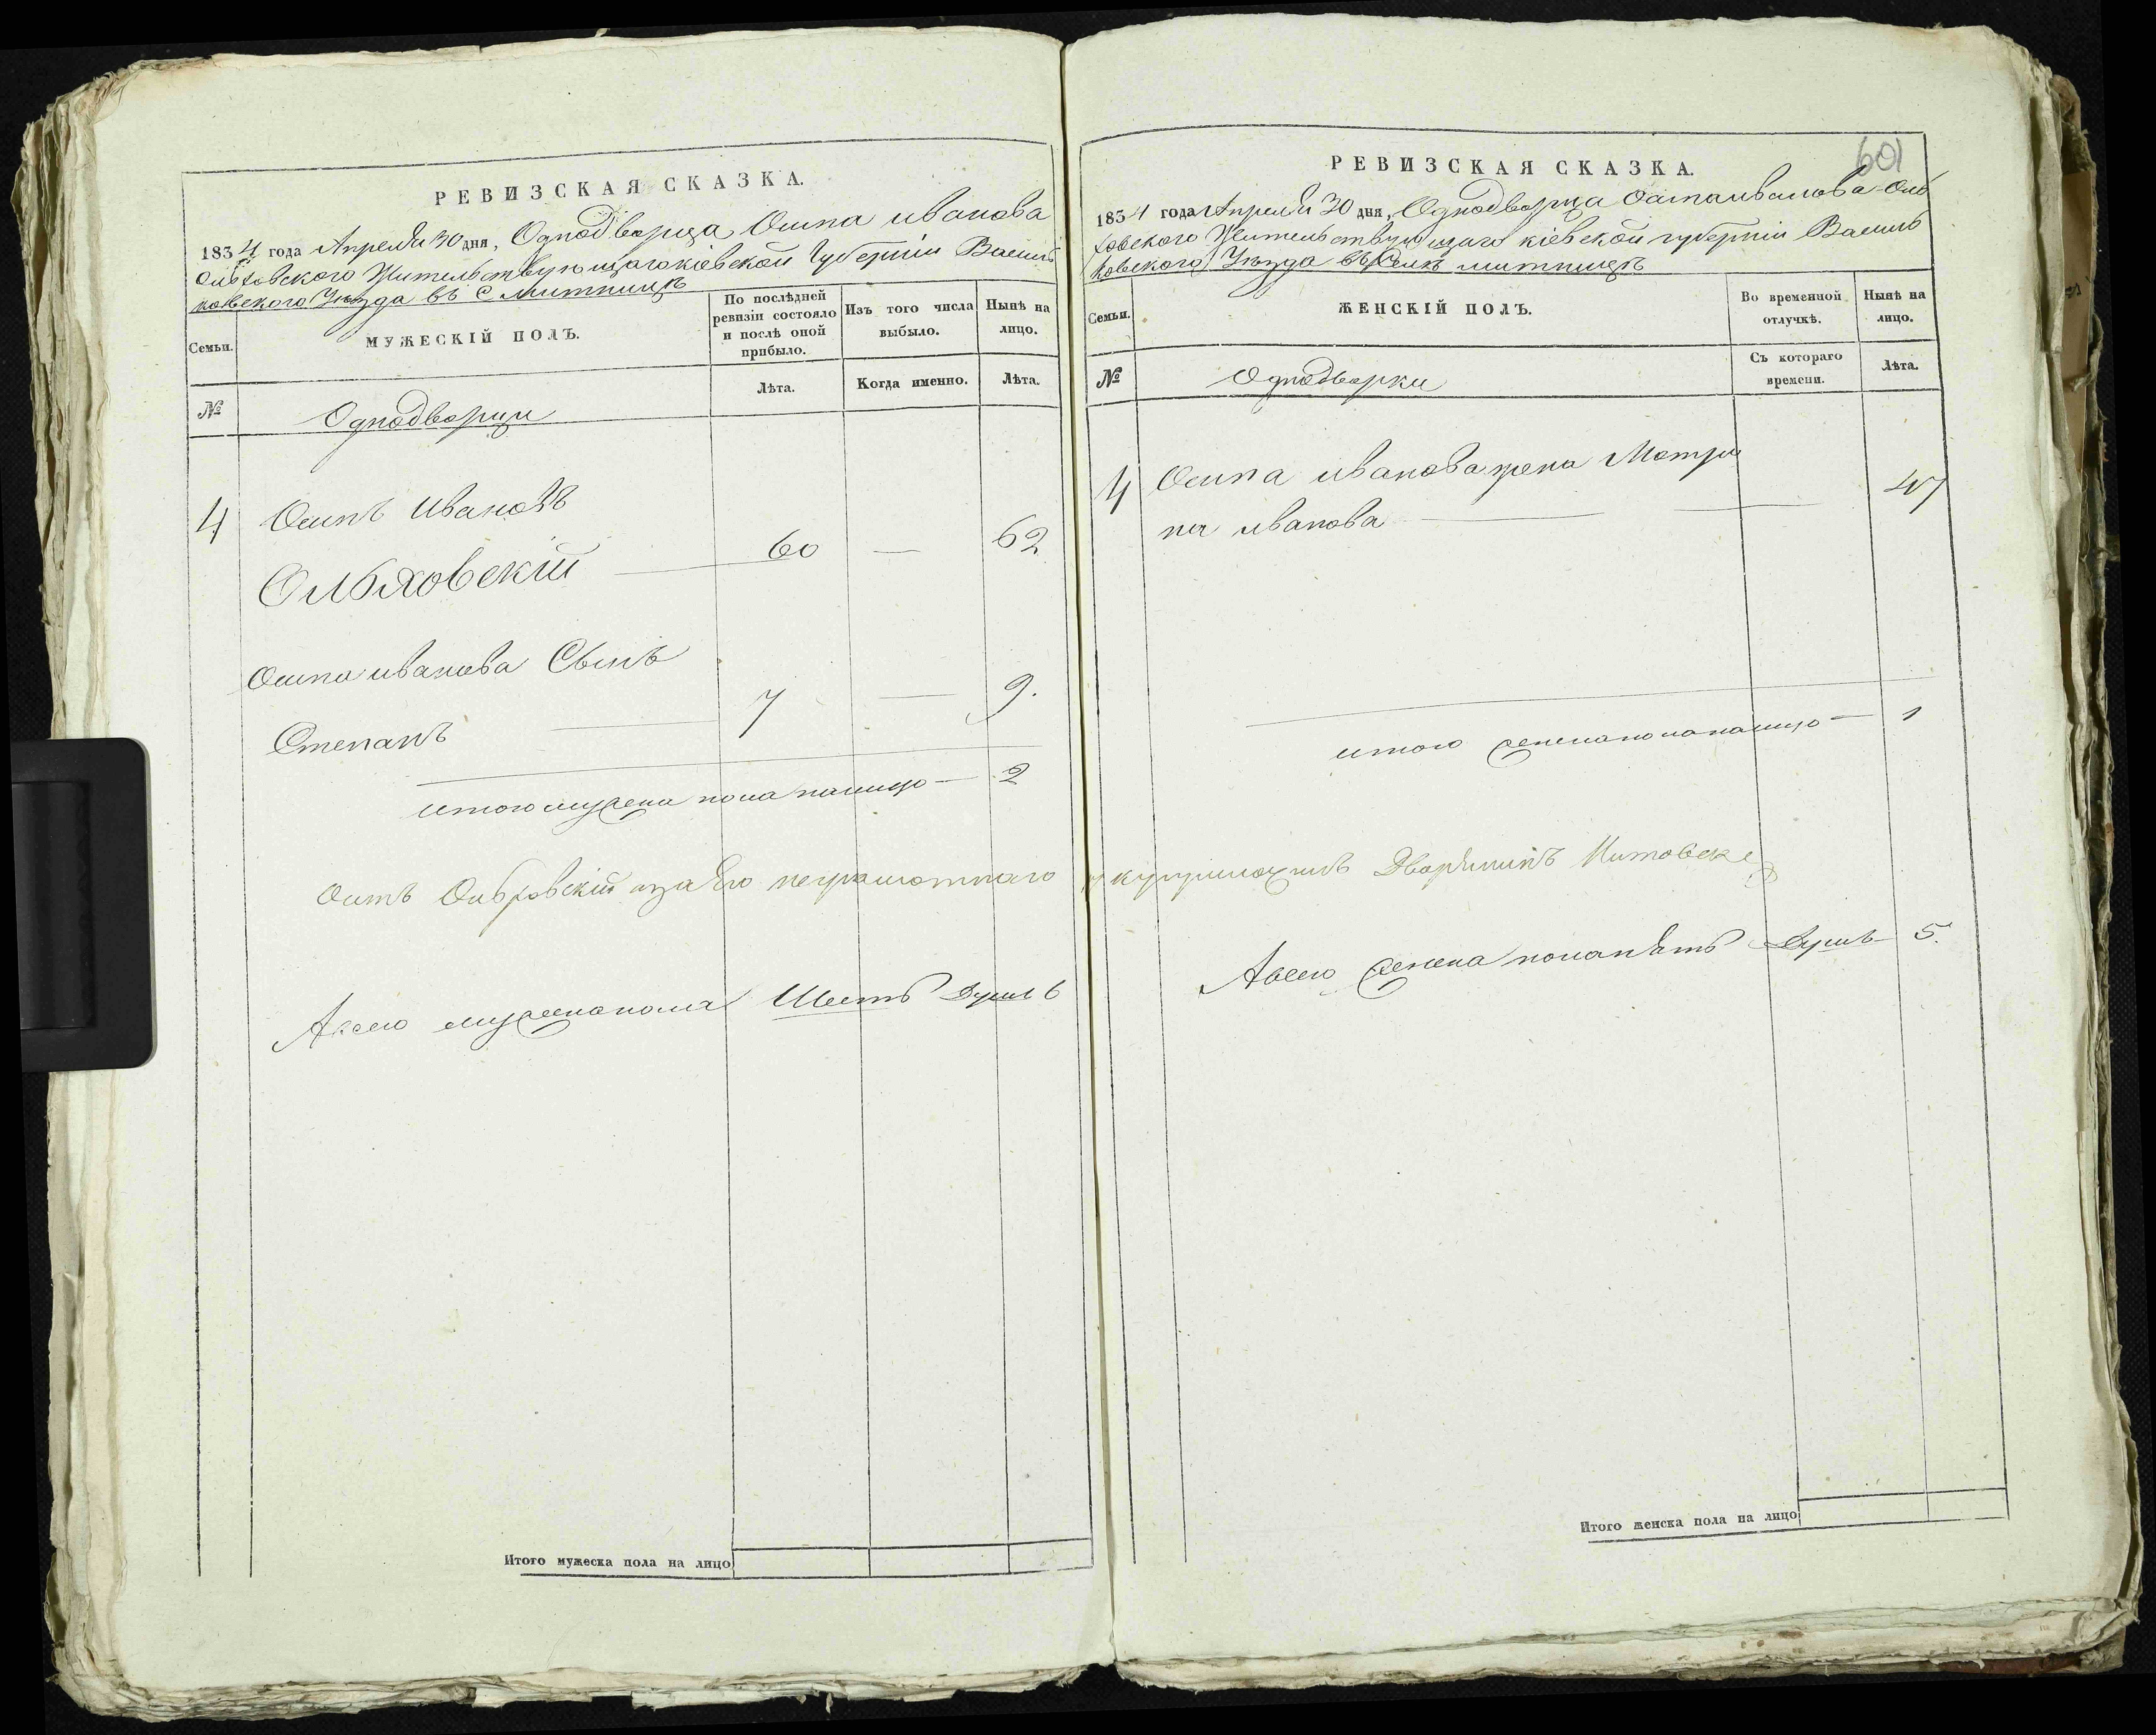 РЕВИЗСКАЯ СКАЗКА.
1834 года Апреля 30 дня, Однодворца Осипа иванова
Ольховского Жительствующаго кіевской Губерніи Василь
ковского Уезда въ с Митницѣ
Семьи.
МУЖЕСКІЙ ПОЛЪ.
По послѣдней
ревизіи состояло
и послѣ оной
прибыло.
Изъ того числа
выбыло.
Нынѣ на
лицо.
№
Однодворци
Лѣта.
Когда именно.
Лѣта.
4 Осипъ Ивановъ
Ольховскій — 60 — 62
Осипа иванова Сынъ
Степанъ — 7 — 9.
итого мужеска пола налицо — 2
Осипъ Ольховскій а за его неграмотнаго
Авсего мужеска пола Шесть Душъ 6
601
РЕВИЗСКАЯ СКАЗКА.
1834 года Апреля 30 дня, Однодворца Осипа иванова Оль
ховского Жительствующаго кіевской губерніи Василь
ковского Уезда въ Селѣ митницѣ
Семьи.
ЖЕНСКІЙ ПОЛЪ.
Во временной
отлучкѣ.
Нынѣ на
лицо.
№
Однодворки
Съ котораго
времени.
Лѣта.
4 Осипа иванова жена Мотри
на иванова — — 47
итого женска пола налицо — 1
Дворянинъ
Авсего женска пола пять Душъ — 5.
Итого мужеска пола на лицо
Итого женска пола на лицо